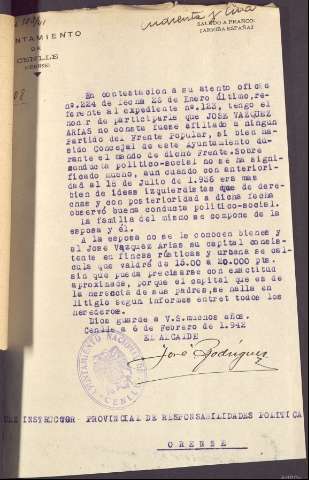 cuarenta y cinco
SALUDO A FRANCO
¡ARRIBA ESPAÑA!
NTAMIENTO
DE
CENLLE
(ORENSE)
En contestación a su atento oficio
nº.224 de fecha 23 de Enero último,re-
ferente al expediente nº.123, tengo el
honor de participarle que JOSE VAZQUEZ
ARIAS no consta fuese afiliado a ningún
Partido del Frente Popular, si bien ha
sido Concejal de este Ayuntamiento du-
rante el mando de dicho Frente.Sobre
conducta politico-social no se ha signi-
ficado mucho, aun cuando con anteriori-
dad al 18 de Julio de 1.936 era mas
bien de ideas izquierdistas que de dere-
chas y con posterioridad a dicha fecha
observó buena conducta politico-social.
La familia del mismo se compone de la
esposa y él.
A la esposa no se le conocen bienes y
el José Vazquez Arias su capital consis-
tente en fincas rústicas y urbana se cal-
cula que valdrá de 15.00 a 20.000 pts.
sin que pueda precisarse con exactitud
aproximada, porque el capital que es de
la herencia de sus padres,se halla en
litigio segun informes entre todos los
herederos.
Dios guarde a V.S.muchos años.
Cenlle a 6 de Febrero de 1.942
EL ALCALDE
José Rodríguez
AYUNTAMIENTO NACIONAL
CENLLE
INSTRUCTOR PROVINCIAL DE RESPONSABILIDADES POLITICA
ORENSE